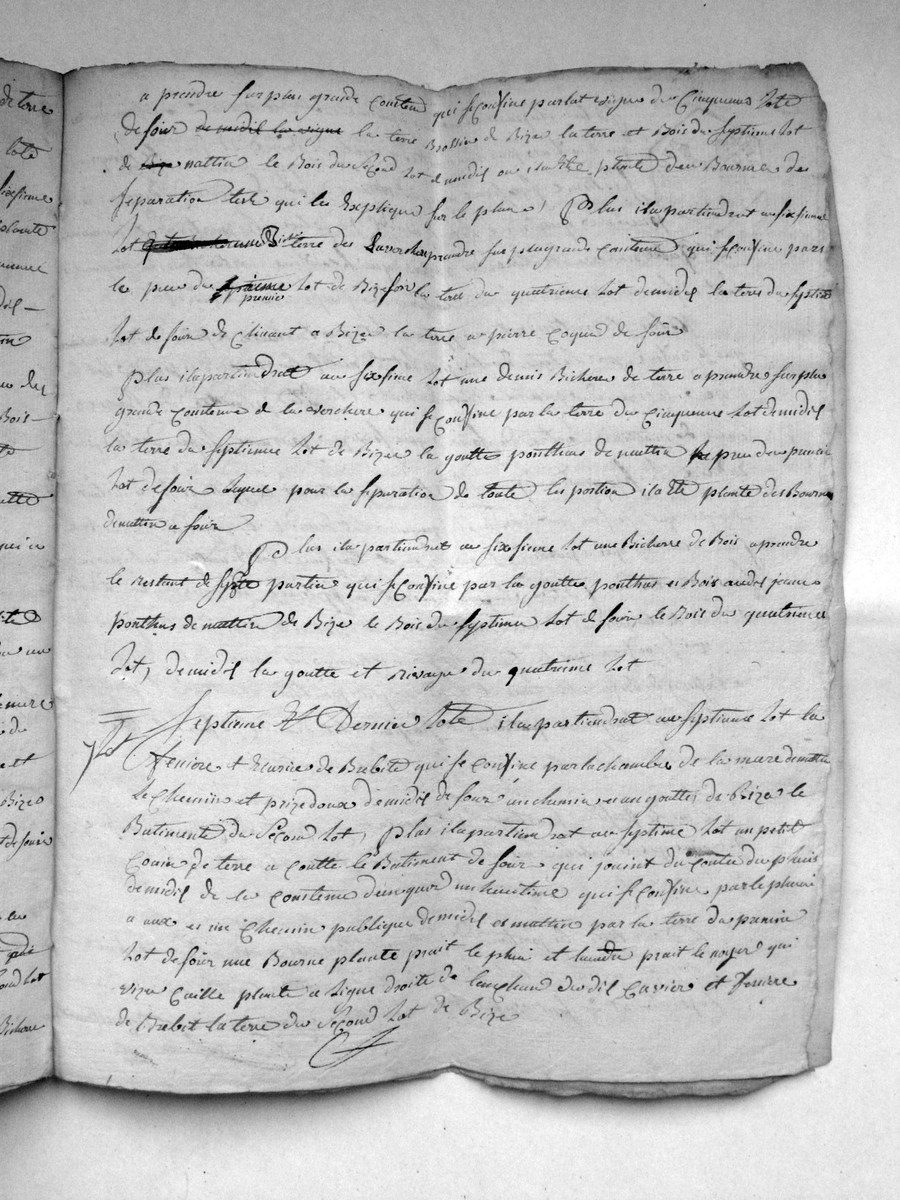 a prendre sur plus grande contenu qui se confine par lat vigne du Cinquieme lote
de soir de midil la vigne la terre Brossin de Bize la terre et Bois du septieme lot
de Bize mattin le Bois du second lot de midil ou il a été plenté deu Bourne de
separation tele qui les Explique sur le plan, Plus il apartiendrat au sixsieme
lot terre des la verchere prendre sur plus grande contenue qui se confine pars
le pren du premie lot de Bize soir la terre du quatrieme lot de midil la terre du septie
lot de soir de clinant a Bize la terre a pierre Coque de soir
Plus il apartiendrat au sixsieme lot une demis Bichere de terre a prendre sur plu
grande contenue de la verchere qui se confine par la terre du Cinquieme lot de midil
la terre du septieme lot de Bize la goutte ponthus de mattin le pren du premie
lot de soir laque pour la separation de toute les portion il a été plenté des Bourne
de mattin a soir
Plus il apartiendrat au sixsieme lot une Bicherre de Bois a prendre
le restant de sette partie qui se confine par la goutte ponthus et Bois andré jean
ponthus de mattin de Bize le Bois du septieme lot de soir le Bois du quatrieme
lot, de midil la goutte et rivage du quatrieme lot
7 lot Septieme Et Dernier lote il apartiendrat au septieme lot la
feniere et Ecurie de Brebite qui se confine par la chambre de la mere de mattin
le chemin et prizedoux de midil de soir un chemin et au goutte de Bize le
Batiment du second lot, Plus il apartiendrat au septieme lot un petit
Couin de terre a coutte le Batiment de soir qui joint du contu du
de midil de la contenue dun quar qui se confine par le
a aux et un Chemin publique de midil et mattin par la terre du premie
lot de soir une Bourne plante prait le et laudre prait le noyer qui
vize plante a ligne droite de du dit Cavier et fenirre
de Brebit la terre du second lot de Bize